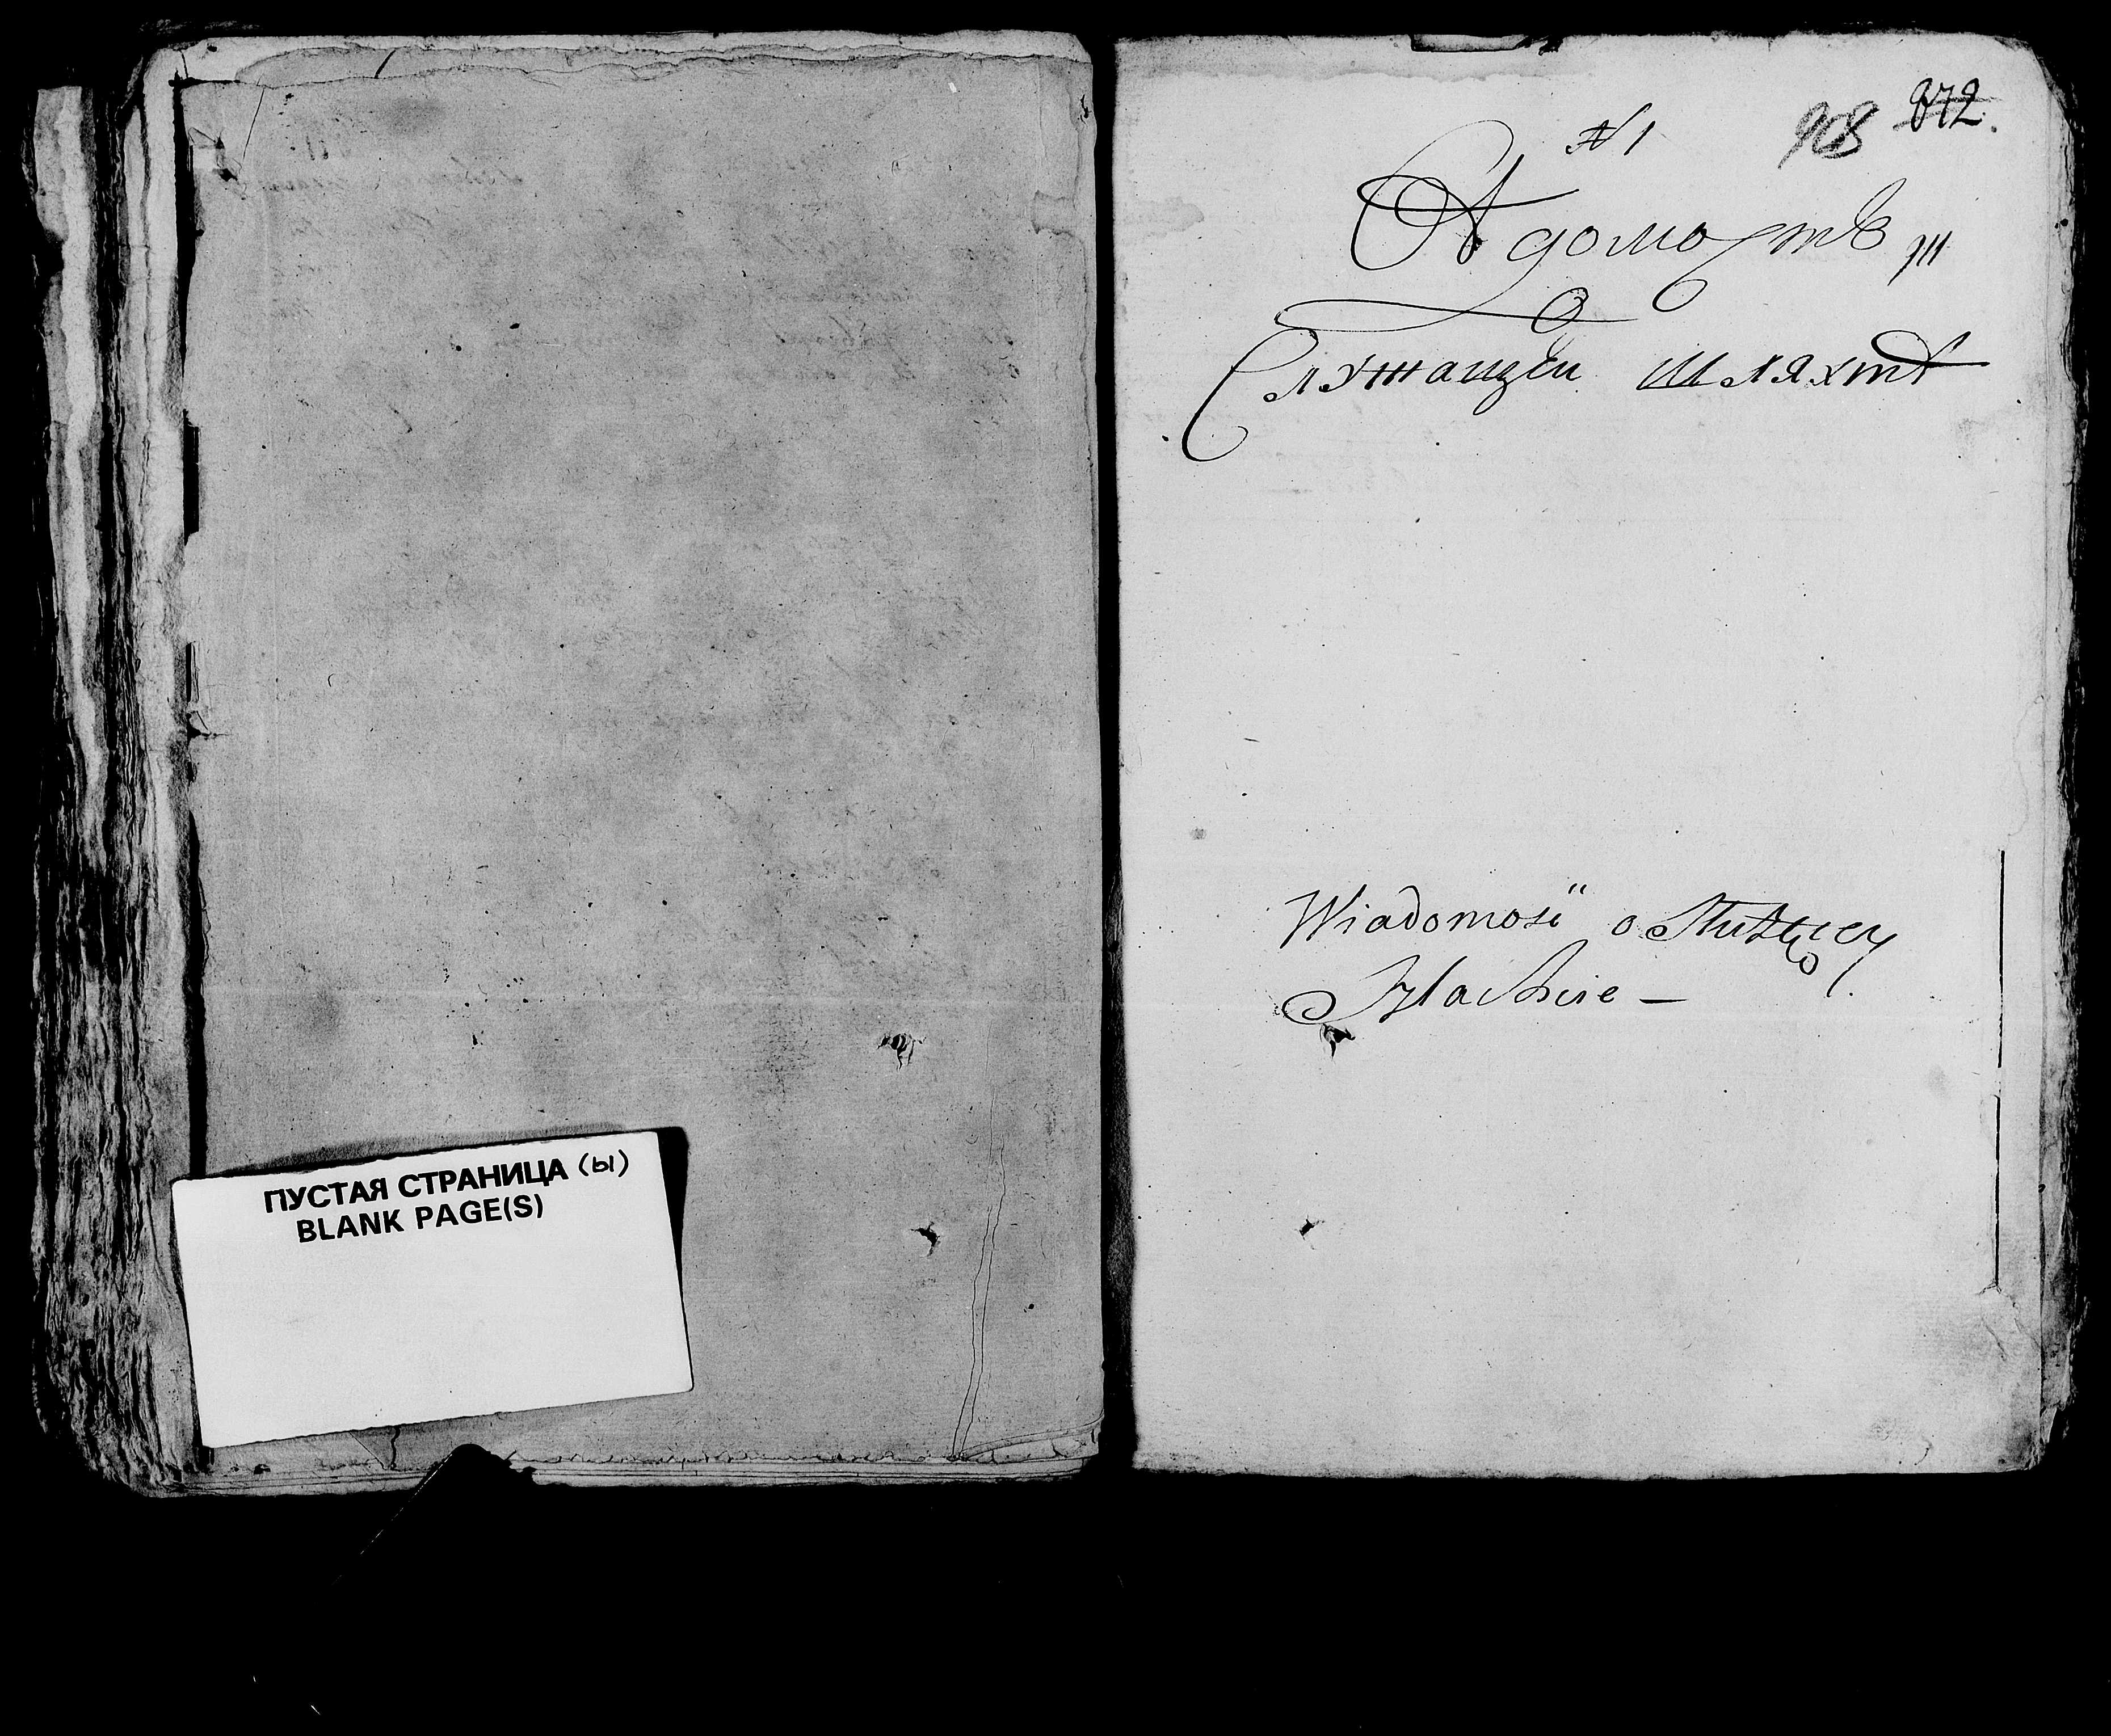 ПУСТАЯ СТРАНИЦА (ы)
BLANK PAGE(S)
908 872.
N 1
Вѣдомость
О
Служащей шляхтѣ
Wiadomość o Służącey
Szlachcie —